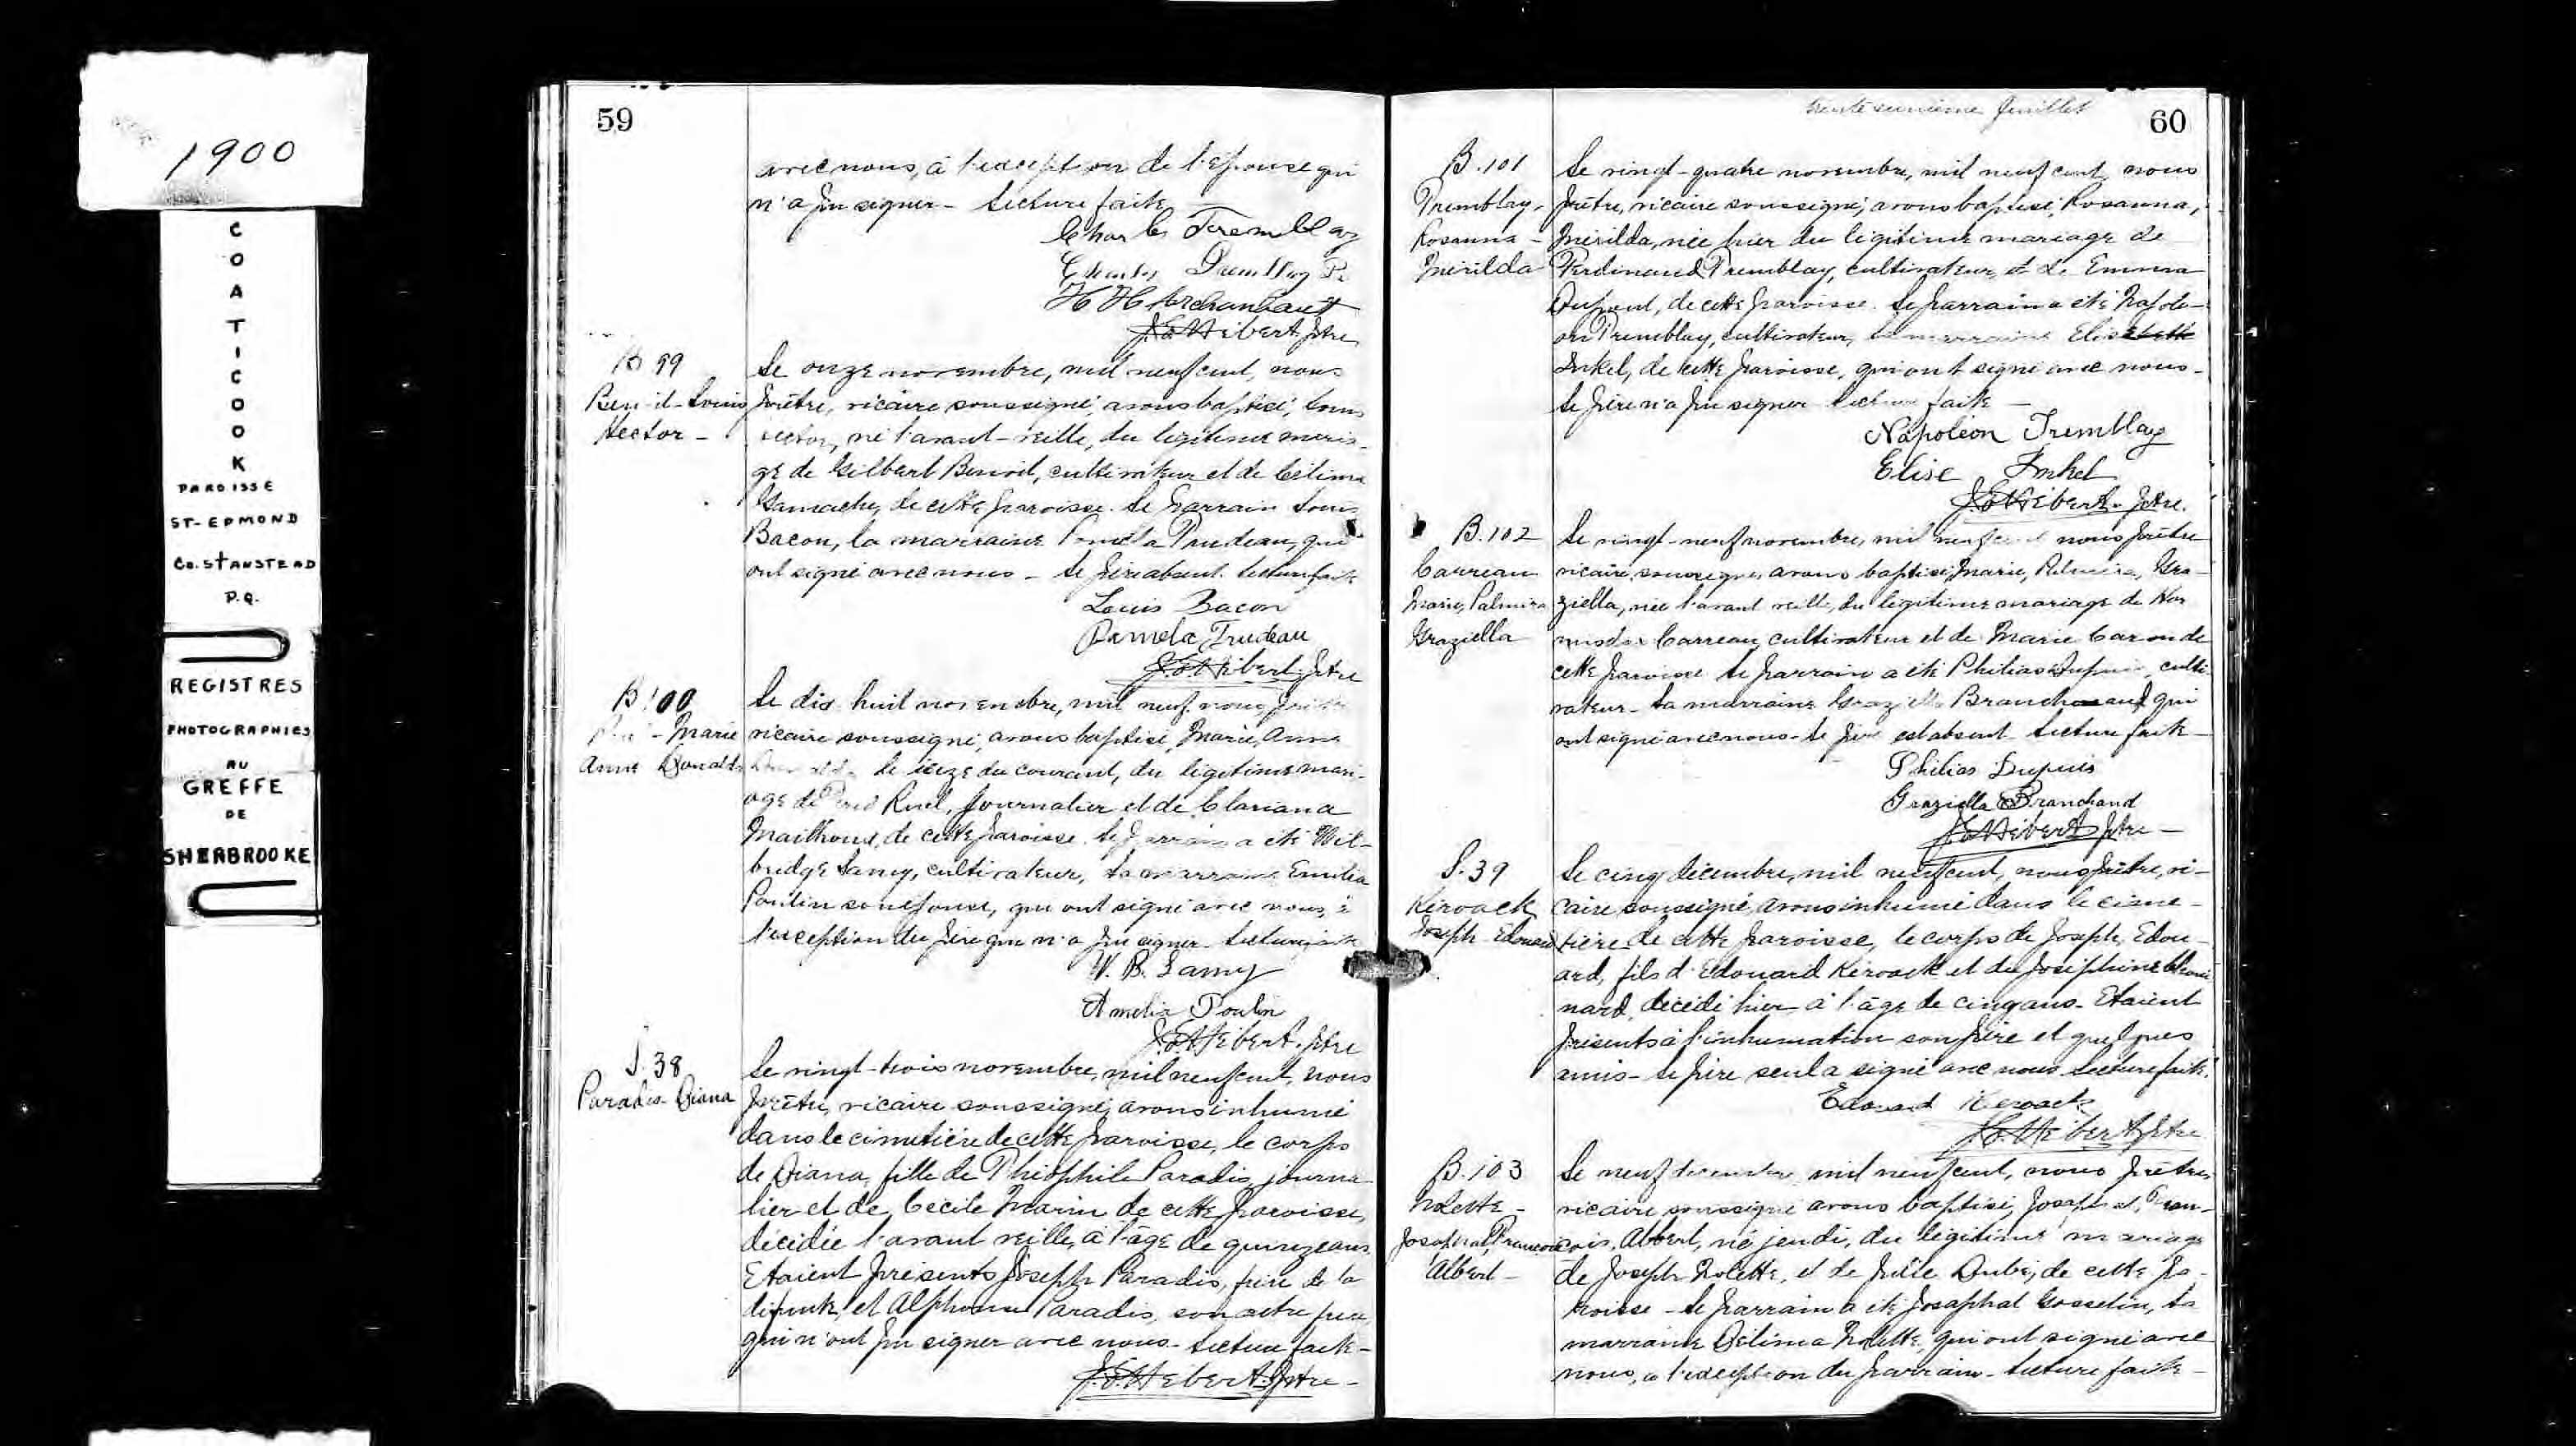 1900
COATICOOK
PAROISSE
ST-EDMOND
CO. STANSTEAD
P.Q.
REGISTRES
PHOTOGRAPHIES
AU
GREFFE
DE
SHERBROOKE
59
avec nous, à l'exception de l'épouse qui
n'a pu signer - Lecture faite
Charles Tremblay
Charles Tremblay
H H Archambault
J.E. Hébert, Ptre
B 99
Benoit-Louis
Hector -
Le onze novembre, mil neuf cent, nous
prêtre, vicaire soussigné, avons baptisé, Louis
Hector, né l'avant-veille, du légitime maria-
ge de Gilbert Benoit, cultivateur et de Célima
Gamache, de cette paroisse. Le parrain Louis
Bacon, la marraine Pamela Trudeau, qui
ont signé avec nous - Le père absent. Lecture faite
Louis Bacon
Pamela Trudeau
J.E. Hébert, Ptre
B 100
Marie
Anna Donalda
Le dix huit novembre, mil neuf nous prêtre
vicaire soussigné, avons baptisé, Marie, Anna
le seize du courant, du légitime mari-
age de Ruel, journalier et de Clariana
Mailhoux, de cette paroisse. Le parrain a été Wil-
bridge Lamy, cultivateur, La marraine Emilia
Poulin son épouse, qui ont signé avec nous, à
l'exception du père qui n'a pu signer - Lecture faite
W. B. Lamy
Amelia Poulin
J.E. Hébert. Ptre
S. 38
Paradis-Diana
Le vingt-trois novembre, mil neuf cent, nous
prêtre, vicaire soussigné, avons inhumé
dans le cimetière de cette paroisse, le corps
de Diana, fille de Théophile Paradis, journa-
lier et de Cécile Marin de cette paroisse,
décédée l'avant veille, à l'âge de quinze ans.
Etaient présents Joseph Paradis, frère de la
défunte, et Alphonse Paradis, son autre frère,
qui n'ont pu signer avec nous - Lecture faite -
J.E. Hébert. Ptre -
trente unième feuillet
60
B. 101
Tremblay-
Rosanna -
Mérilda
Le vingt-quatre novembre, mil neuf cent, nous
prêtre, vicaire soussigné, avons baptisé, Rosanna,
Mérilda, née hier du légitime mariage de
Ferdinand Tremblay, cultivateur, et de Emma
Dupont, de cette paroisse. Le parrain a été Napolé-
on Tremblay, cultivateur, la marraine Elise
Inkel, de cette paroisse, qui ont signé avec nous -
Le père n'a pu signer Lecture faite -
Napoléon Tremblay
Elise Inkel
J.E. Hébert. Ptre.
B. 102
Carreau
Marie, Palmira
Graziella
Le vingt-neuf novembre, mil neuf cent nous prêtre
vicaire, soussigné, avons baptisé, Marie, Palmira, Gra-
ziella, née l'avant veille, du légitime mariage de Hor
misdas Carreau, cultivateur et de Marie Caron de
cette paroisse Le parrain a été Philias Dupuis, culti-
vateur - La marraine Graziella Branchaud qui
ont signé avec nous - Le père est absent Lecture faite -
Philias Dupuis
Graziella Branchaud
J.E. Hébert, Ptre -
S. 39
Kéroack
Joseph-Edouard
Le cinq décembre, mil neuf cent, nous prêtre, vi-
caire soussigné, avons inhumé dans le cime-
tière de cette paroisse, le corps de Joseph, Edou-
ard, fils d'Edouard Kéroack et de Joséphine
nard, décédé hier à l'âge de cinq ans - Etaient
présents à l'inhumation son père et quelques
amis - Le père seul a signé avec nous Lecture faite.
Edouard Kéroack
J.E. Hébert, Ptre
B. 103
Nolette -
Josaphat, Francois
Albert -
Le neuf décembre, mil neuf cent, nous prêtre,
vicaire soussigné avons baptisé, Josaphat, Fran-
çois, Albert, né jeudi, du légitime mariage
de Joseph Nolette, et de Julie Dubé, de cette pa-
roisse - Le parrain a été Josaphat Gosselin, La
marraine Délima Nolette, qui ont signé avec
nous, à l'exception du parrain - Lecture faite -